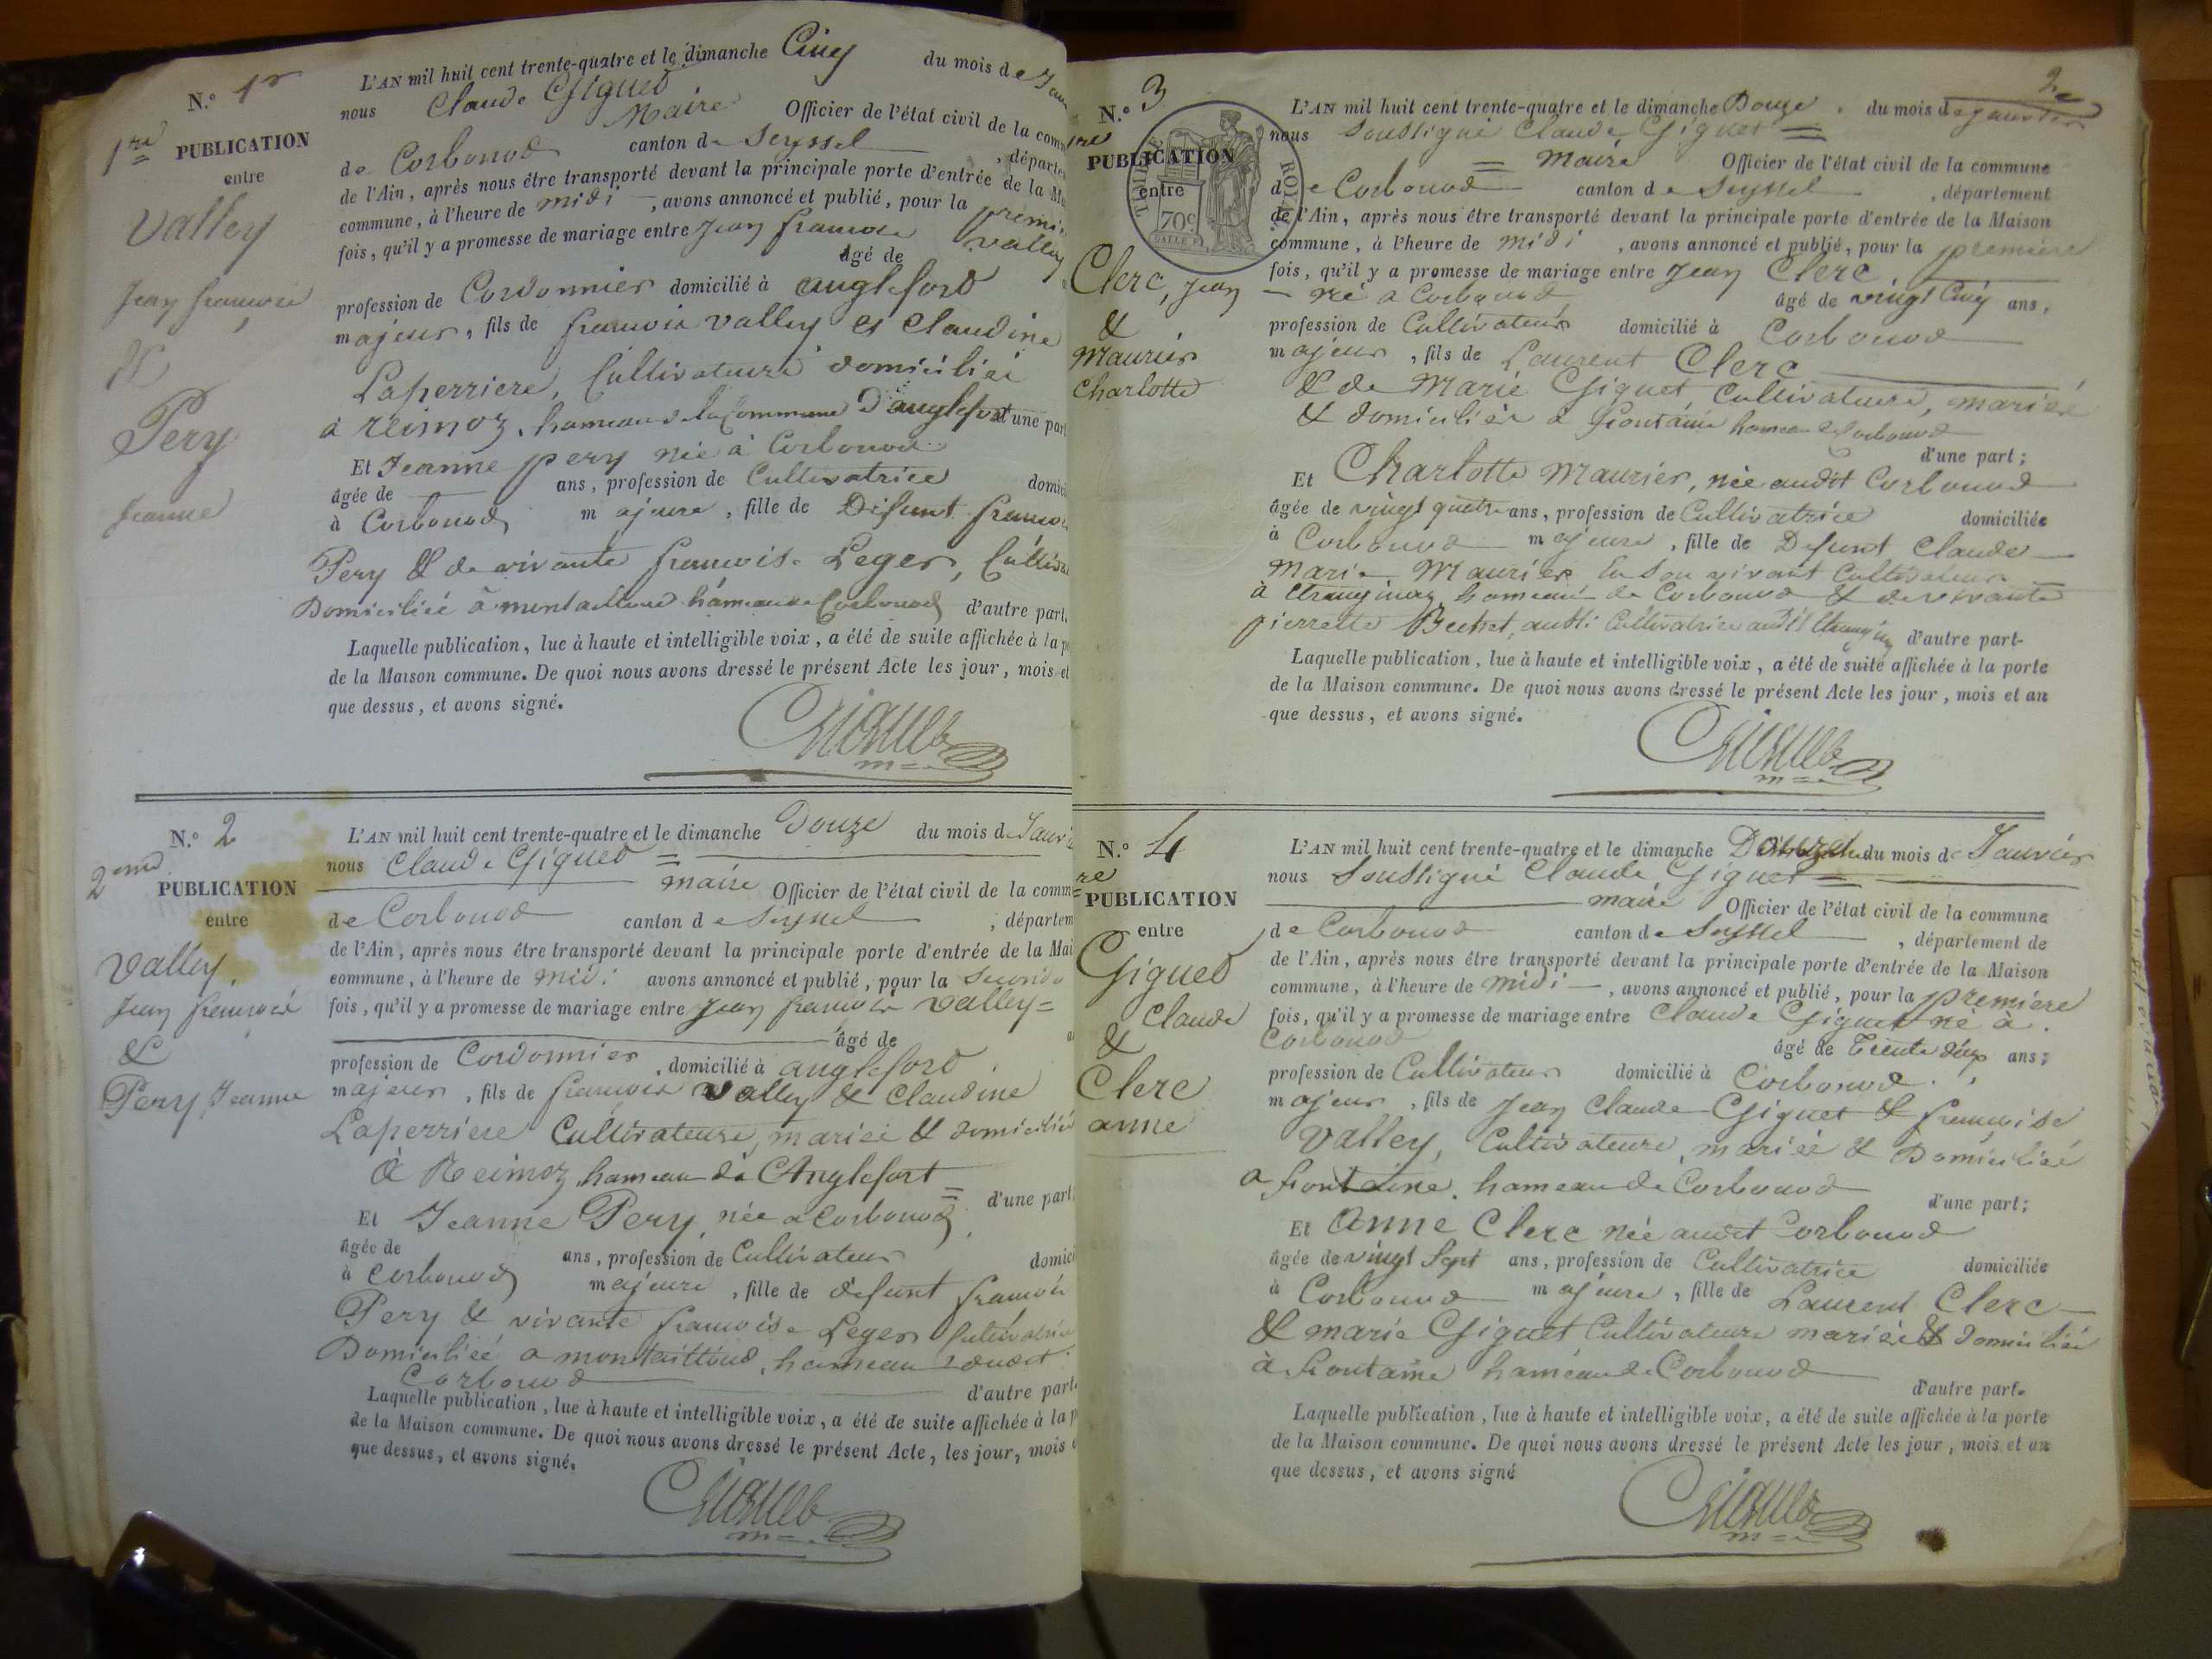 N.° 1er
1re
PUBLICATION
entre
Valley
Jean françois
&
Pery
Jeanne
L'AN mil huit cent trente-quatre et le dimanche Cinq du mois de Janv
nous Claude Giguet
Maire Officier de l'état civil de la comm
de Corbonod canton de Seyssel , départem
de l'Ain, après nous être transporté devant la principale porte d'entrée de la Ma
commune, à l'heure de midi , avons annoncé et publié, pour la premi
fois, qu'il y a promesse de mariage entre Jean francois Valley
âgé de
profession de Cordonnier domicilié à anglefort
majeur, fils de francois Valley et Claudine
Laperriere, Cultivateurs domiciliés
à Reimoz, hameau de la Commune d'anglefort d'une part
Et Jeanne Pery née à Corbonod
âgée de ans, profession de Cultivatrice domici
à Corbonod majeure, fille de Défunt franco
Pery & de vivante francoise Leger, Cultiva
Domiciliée à montailloud hameau de Corbonod d'autre part.
Laquelle publication, lue à haute et intelligible voix, a été de suite affichée à la po
de la Maison commune. De quoi nous avons dressé le présent Acte les jour, mois et
que dessus, et avons signé.
Giguet
m=
N.° 2
2eme
PUBLICATION
entre
Valley
Jean francois
&
Pery Jeanne
L'AN mil huit cent trente-quatre et le dimanche Douze du mois de Janvi
nous Claude Giguet =
maire Officier de l'état civil de la comm
de Corbonod canton de Seyssel , départem
de l'Ain, après nous être transporté devant la principale porte d'entrée de la Mai
commune, à l'heure de midi avons annoncé et publié, pour la seconde
fois, qu'il y a promesse de mariage entre Jean francois Valley =
âgé de a
profession de Cordonnier, domicilié à anglefort
majeur, fils de francois Valley & Claudine
Laperriere Cultivateurs, mariés & domiciliés
à Reimoz, hameau de Anglefort =
d'une part;
Et Jeanne Pery, née a Corbonod,
âgée de ans, profession de Cultivateur domici
à Corbonod majeure, fille de défunt francois
Pery & vivante francoise Leger Cultivatrice
Domiciliée a montailloud, hameau dudit
Corbonod d'autre part.
Laquelle publication, lue à haute et intelligible voix, a été de suite affichée à la p
de la Maison commune. De quoi nous avons dressé le présent Acte, les jour, mois e
que dessus, et avons signé.
Giguet
m=
2e
N.° 3
1re
PUBLICATION
entre
TIMBRE ROYAL
70c
Clerc, Jean
&
Maurier
Charlotte
L'AN mil huit cent trente-quatre et le dimanche Douze du mois de Janvier
nous soussigné Claude Giguet =
= maire Officier de l'état civil de la commune
de Corbonod canton de Seyssel , département
de l'Ain, après nous être transporté devant la principale porte d'entrée de la Maison
commune, à l'heure de midi , avons annoncé et publié, pour la première
fois, qu'il y a promesse de mariage entre Jean Clerc
né à Corbonod âgé de vingt Cinq ans,
profession de Cultivateur domicilié à Corbonod
majeur, fils de Laurent Clerc
& de Marie Giguet, Cultivateurs, mariés
& domiciliés à fontaine hameau de Corbonod
d'une part;
Et Charlotte Maurier, née audit Corbonod
âgée de vingt quatre ans, profession de Cultivatrice domiciliée
à Corbonod majeure, fille de Défunt Claude
Marie Maurier, En Son vivant Cultivateur
à hameau de Corbonod & de vivante
pierrette Bechet, aussi Cultivatrice audit d'autre part.
Laquelle publication, lue à haute et intelligible voix, a été de suite affichée à la porte
de la Maison commune. De quoi nous avons dressé le présent Acte les jour, mois et an
que dessus, et avons signé.
Giguet
m=
N.° 4
re
PUBLICATION
entre
Giguet
Claude
&
Clerc
anne
L'AN mil huit cent trente-quatre et le dimanche Douze du mois de Janvier
nous soussigné Claude Giguet =
maire Officier de l'état civil de la commune
de Corbonod canton de Seyssel , département de
de l'Ain, après nous être transporté devant la principale porte d'entrée de la Maison
commune, à l'heure de midi , avons annoncé et publié, pour la première
fois, qu'il y a promesse de mariage entre Claude Giguet né à
Corbonod âgé de Trente ans;
profession de Cultivateur domicilié à Corbonod,
majeur, fils de Jean Claude Giguet & francoise
Valley, Cultivateurs, mariés & Domiciliés
a fontaine, hameau de Corbonod
d'une part;
Et Anne Clerc née audit Corbonod
âgée de vingt Sept ans, profession de Cultivatrice domiciliée
à Corbonod majeure, fille de Laurent Clerc
& marie Giguet Cultivateurs mariés & domiciliés
à fontaine hameau de Corbonod
d'autre part.
Laquelle publication, lue à haute et intelligible voix, a été de suite affichée à la porte
de la Maison commune. De quoi nous avons dressé le présent Acte les jour, mois et an
que dessus, et avons signé
Giguet
m=